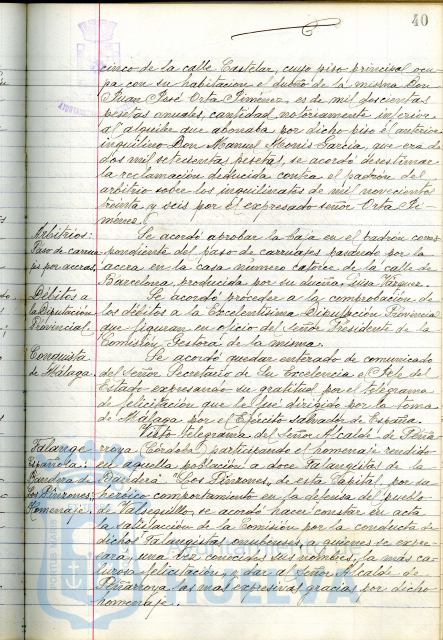 40
cinco de la calle Castelar, cuyo piso principal ocu-
pa con su habitación el dueño de la misma Don
Juan José Orta Jiménez, es de mil doscientas
pesetas anuales, cantidad notoriamente inferior
al alquiler que abonaba por dicho piso el anterior
inquilino Don Manuel García, que era de
dos mil setecientas pesetas, se acordó desestimar
la reclamación deducida contra el padrón del
arbitrio sobre los inquilinatos de mil novecientos
treinta y seis por el expresado señor Orta Ji-
ménez.
Arbitrios:
Paso de carrua-
jes por aceras.
Se acordó aprobar la baja en el padrón corres-
pondiente del paso de carruajes pasando por la
acera en la casa número catorce de la calle de
Barcelona, producida por su dueña, Luisa Vázquez.
Débitos a
la Diputación
Provincial.
Se acordó proceder a la comprobación de
los débitos a la Excelentísima Diputación Provincial
que figuran en oficio del señor Presidente de la
Comisión Gestora de la misma.
Conquista
de Málaga.
Se acordó quedar enterado de comunicado
del Señor Secretario de Su Excelencia el Jefe del
Estado expresando su gratitud por el telegrama
de felicitación que le fué dirigido por la toma
de Málaga por el Ejército salvador de España.
Falange
Española:
Bandera de
Los Pinzones.
Homenaje.
Visto telegrama del Señor Alcalde de Peña-
rroya (Córdoba) participando el homenaje rendido
en aquella población a doce falangistas de la
Bandera "Los Pinzones" de esta Capital, por su
heróico comportamiento en la defensa del pueblo
de Valsequillo, se acordó hacer constar en acta
la satisfacción de la Comisión por la conducta de
dichos falangistas onubenses, a quienes se expre-
sará, una vez conocidos sus nombres, la más ca-
lurosa felicitación, y dar al Señor Alcalde de
Peñarroya las más expresivas gracias por dicho
homenaje.
HUELVA